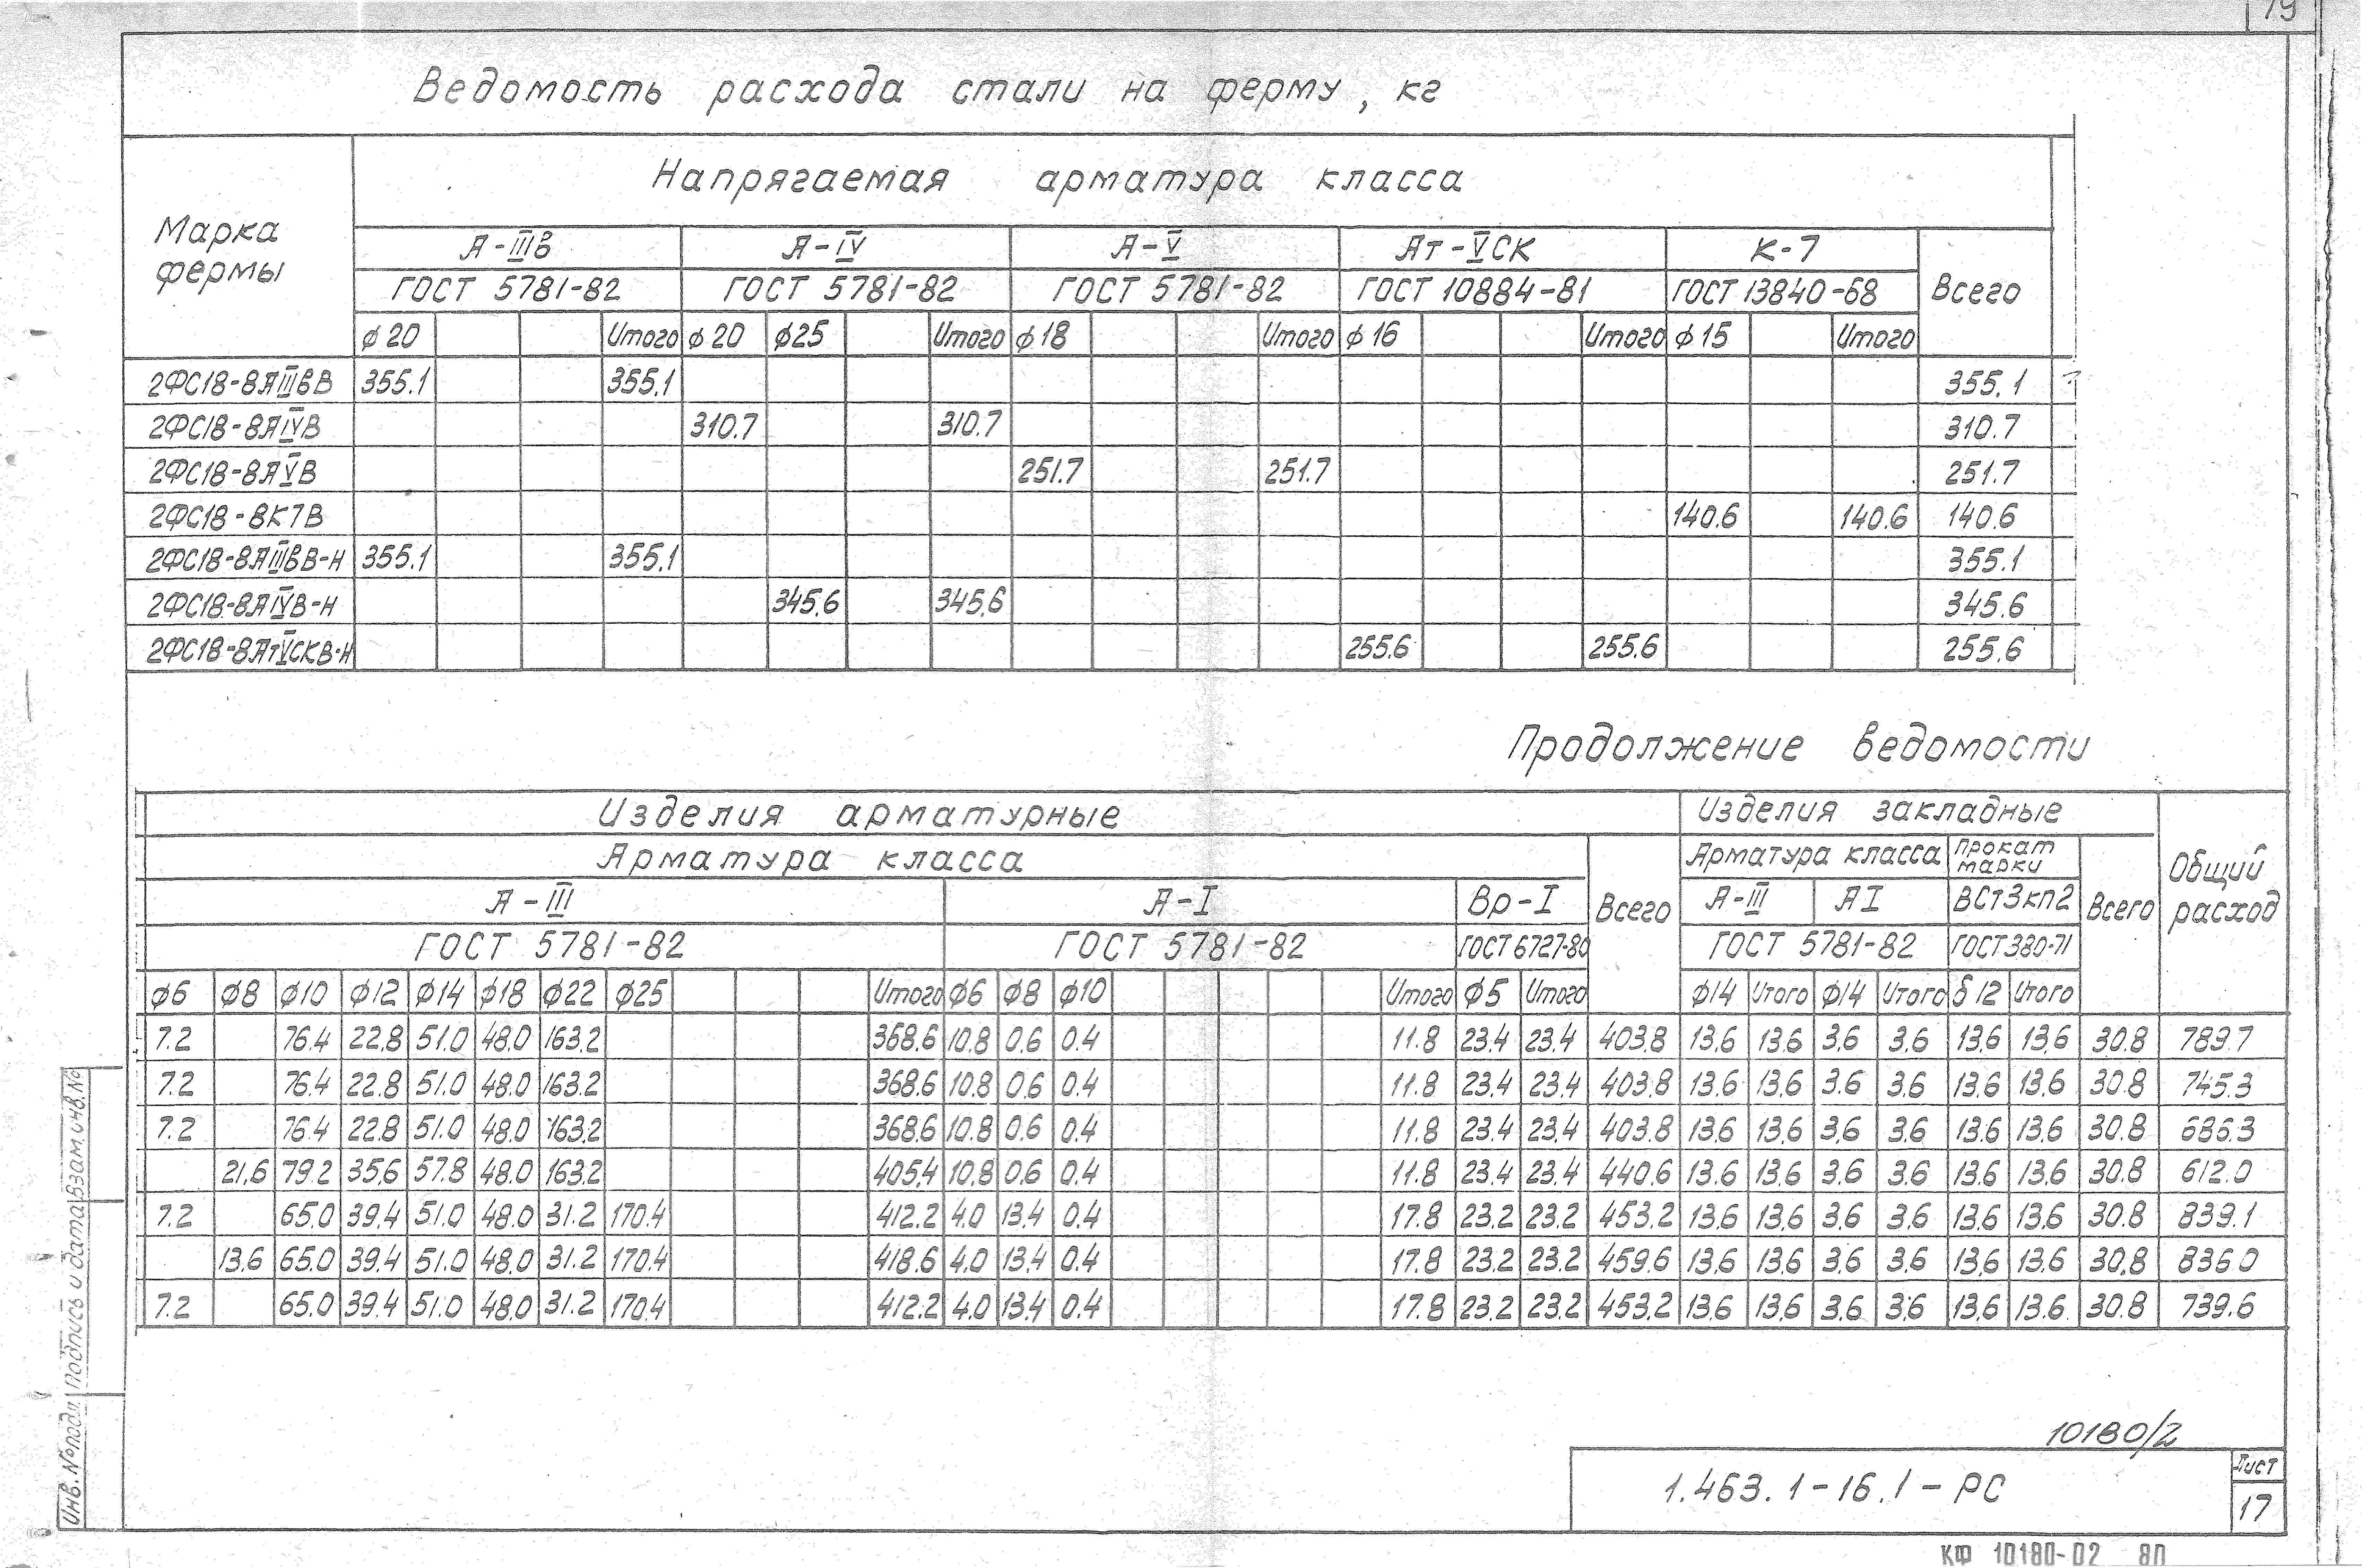 19
Ведомость расхода стали на ферму, кг
Марка фермы
Напрягаемая арматура класса
А-IIIв А-IV А-V Ат-VСК К-7 Всего
ГОСТ 5781-82 ГОСТ 5781-82 ГОСТ 5781-82 ГОСТ 10884-81 ГОСТ 13840-68
ф20 Итого ф20 ф25 Итого ф18 Итого ф16 Итого ф15 Итого
2ФС18-8АIIIвВ 355.1 355.1 355.1
2ФС18-8АIVВ 310.7 310.7 310.7
2ФС18-8АVВ 251.7 251.7 251.7
2ФС18-8К7В 140.6 140.6 140.6
2ФС18-8АIIIвВ-Н 355.1 355.1 355.1
2ФС18-8АIVВ-Н 345.6 345.6 345.6
2ФС18-8АтVСКВ-Н 255.6 255.6 255.6
Продолжение ведомости
Изделия арматурные Изделия закладные Общий расход
Арматура класса Всего Арматура класса Прокат марки Всего
А-III А-I Вр-I А-III АI ВСт3кп2
ГОСТ 5781-82 ГОСТ 5781-82 ГОСТ 6727-80 ГОСТ 5781-82 ГОСТ 380-71
ф6 ф8 ф10 ф12 ф14 ф18 ф22 ф25 Итого ф6 ф8 ф10 Итого ф5 Итого ф14 Итого ф14 Итого δ12 Итого
7.2 76.4 22.8 51.0 48.0 163.2 368.6 10.8 0.6 0.4 11.8 23.4 23.4 403.8 13.6 13.6 3.6 3.6 13.6 13.6 30.8 789.7
7.2 76.4 22.8 51.0 48.0 163.2 368.6 10.8 0.6 0.4 11.8 23.4 23.4 403.8 13.6 13.6 3.6 3.6 13.6 13.6 30.8 745.3
7.2 76.4 22.8 51.0 48.0 163.2 368.6 10.8 0.6 0.4 11.8 23.4 23.4 403.8 13.6 13.6 3.6 3.6 13.6 13.6 30.8 686.3
21.6 79.2 35.6 57.8 48.0 163.2 405.4 10.8 0.6 0.4 11.8 23.4 23.4 440.6 13.6 13.6 3.6 3.6 13.6 13.6 30.8 612.0
7.2 65.0 39.4 51.0 48.0 31.2 170.4 412.2 4.0 13.4 0.4 17.8 23.2 23.2 453.2 13.6 13.6 3.6 3.6 13.6 13.6 30.8 839.1
13.6 65.0 39.4 51.0 48.0 31.2 170.4 418.6 4.0 13.4 0.4 17.8 23.2 23.2 459.6 13.6 13.6 3.6 3.6 13.6 13.6 30.8 836.0
7.2 65.0 39.4 51.0 48.0 31.2 170.4 412.2 4.0 13.4 0.4 17.8 23.2 23.2 453.2 13.6 13.6 3.6 3.6 13.6 13.6 30.8 739.6
Инв. № подл. Подпись и дата Взам. инв. №
10180/2
1.463.1-16.1-РС
Лист
17
КФ 10180-02 80